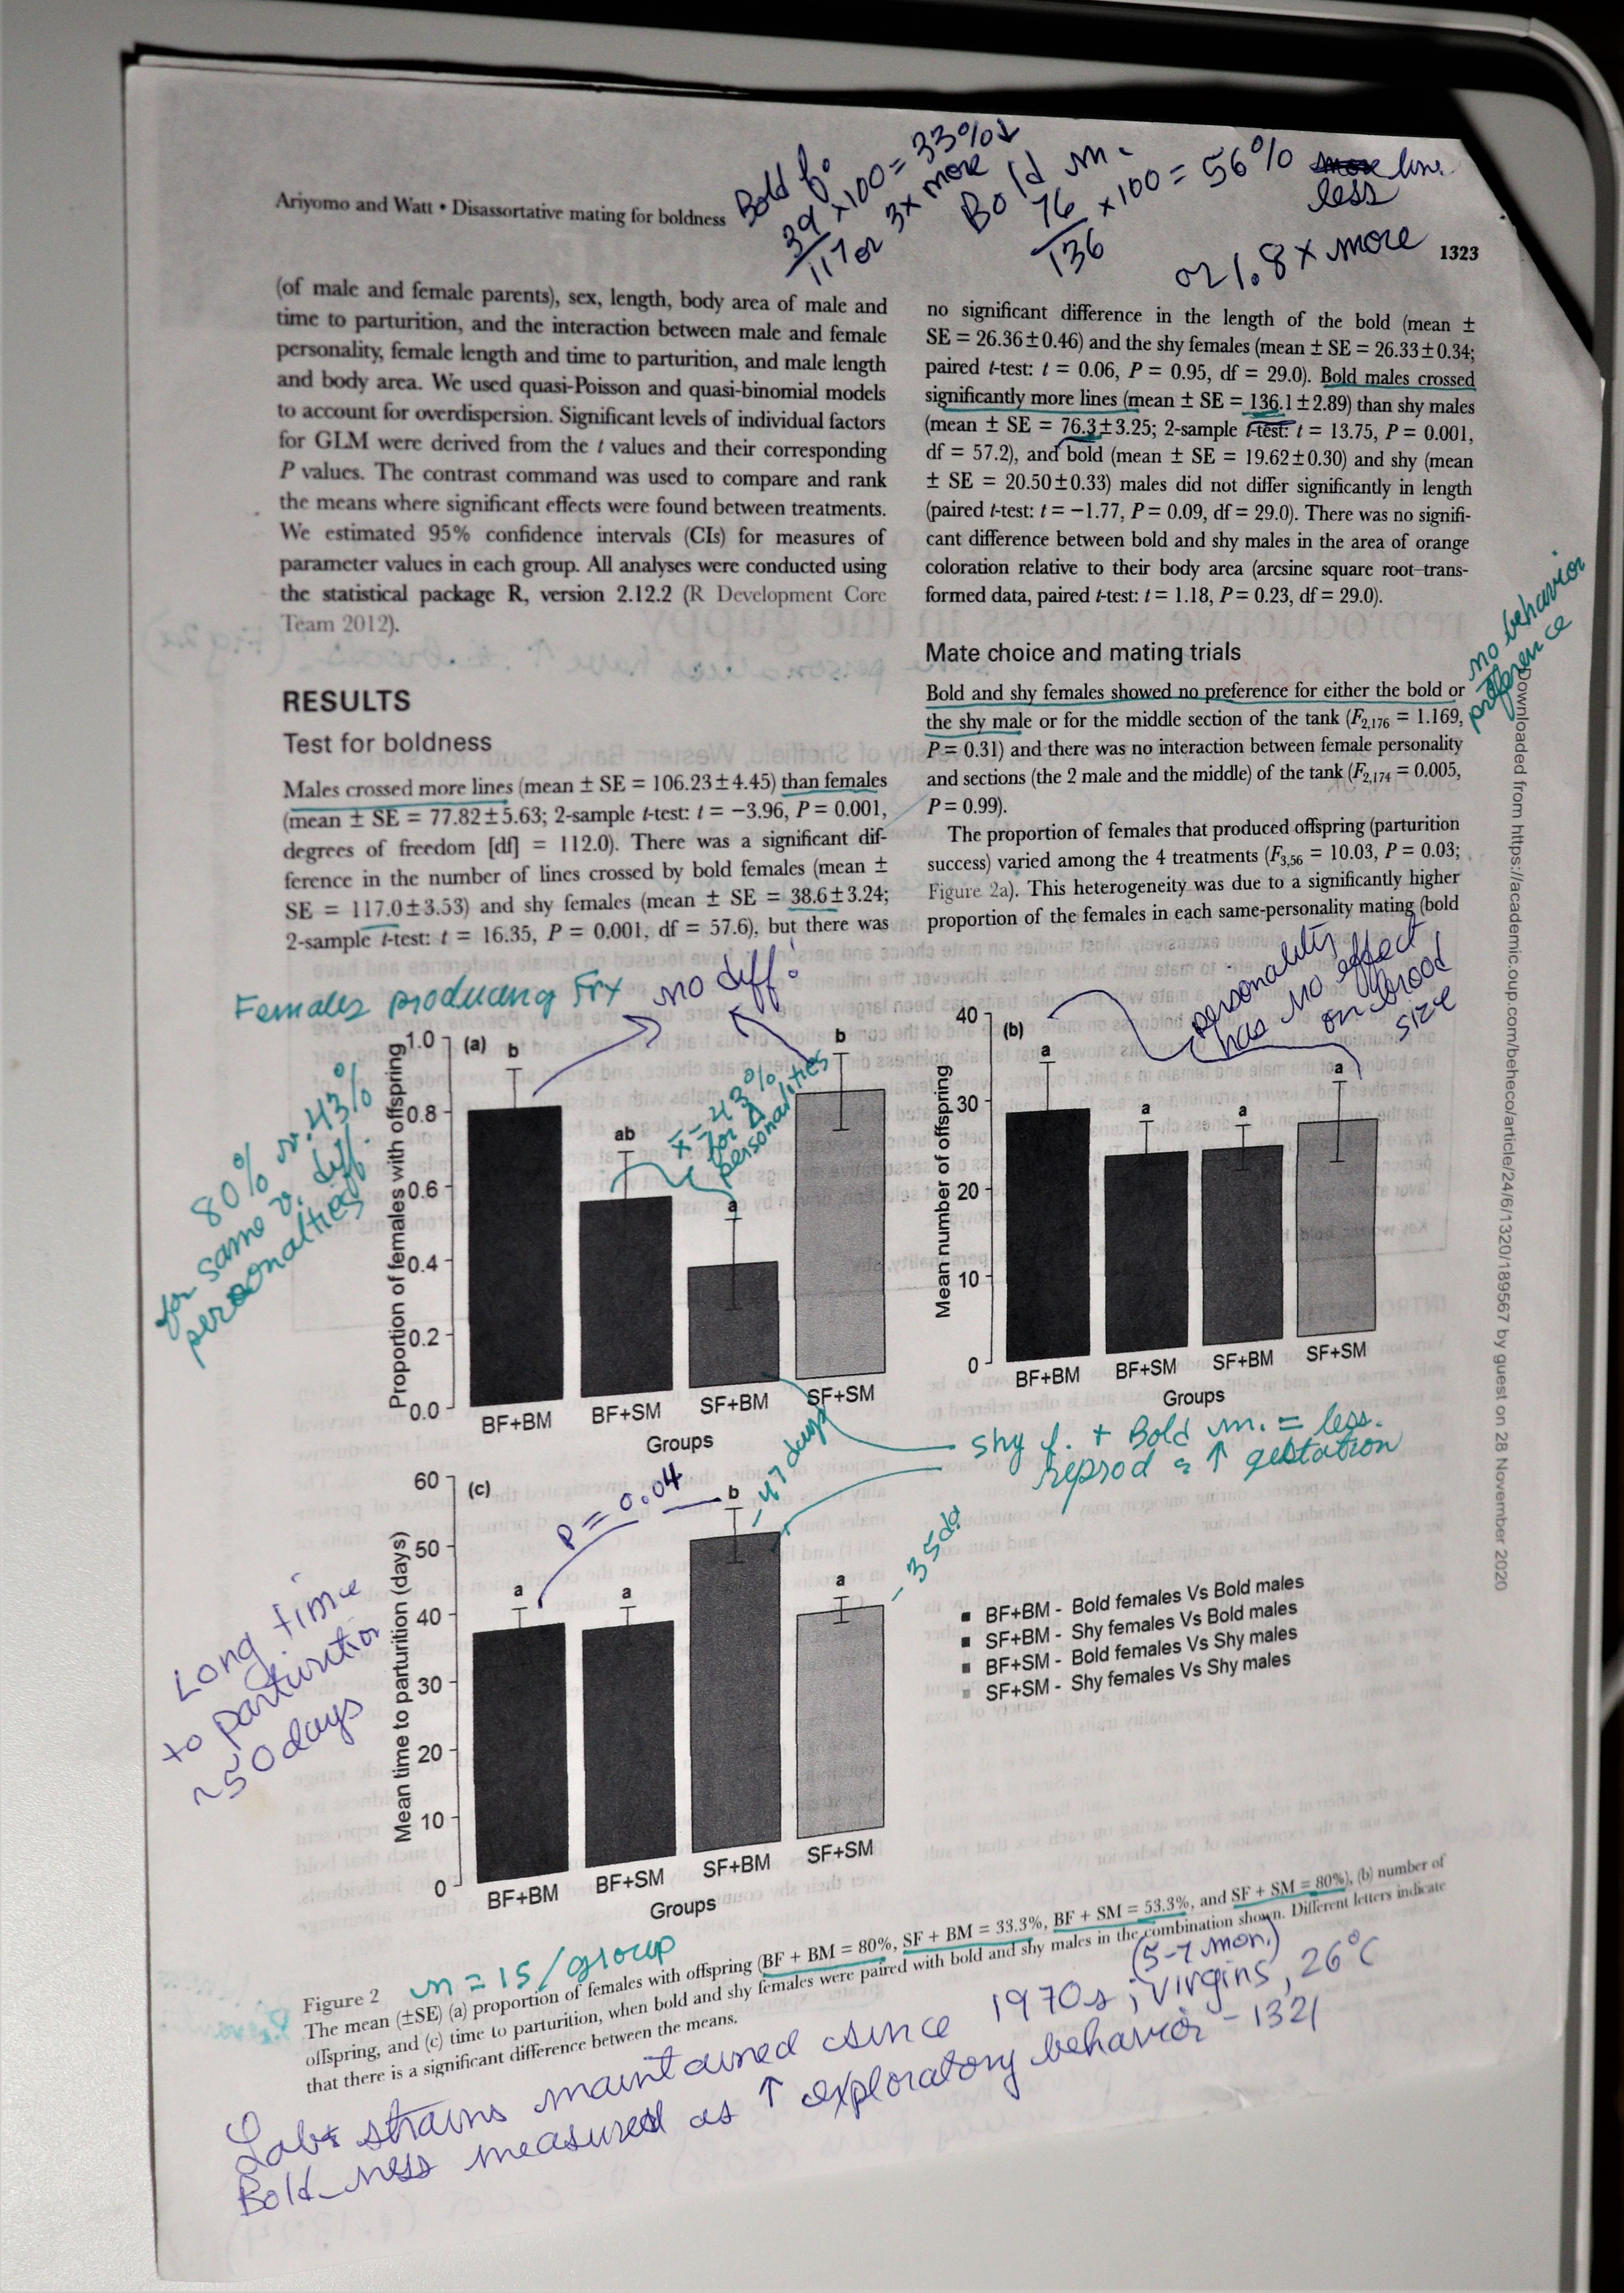 Bold f.
39/117 x100 = 33%↓
or 3x more
Bold m.
76/136 x100 = 56%
less
or 1.8x more
Ariyomo and Watt • Disassortative mating for boldness
1323
(of male and female parents), sex, length, body area of male and
time to parturition, and the interaction between male and female
personality, female length and time to parturition, and male length
and body area. We used quasi-Poisson and quasi-binomial models
to account for overdispersion. Significant levels of individual factors
for GLM were derived from the t values and their corresponding
P values. The contrast command was used to compare and rank
the means where significant effects were found between treatments.
We estimated 95% confidence intervals (CIs) for measures of
parameter values in each group. All analyses were conducted using
the statistical package R, version 2.12.2 (R Development Core
Team 2012).
RESULTS
Test for boldness
Males crossed more lines (mean ± SE = 106.23±4.45) than females
(mean ± SE = 77.82±5.63; 2-sample t-test: t = −3.96, P = 0.001,
degrees of freedom [df] = 112.0). There was a significant dif-
ference in the number of lines crossed by bold females (mean ±
SE = 117.0±3.53) and shy females (mean ± SE = 38.6±3.24;
2-sample t-test: t = 16.35, P = 0.001, df = 57.6), but there was
no significant difference in the length of the bold (mean ±
SE = 26.36±0.46) and the shy females (mean ± SE = 26.33±0.34;
paired t-test: t = 0.06, P = 0.95, df = 29.0). Bold males crossed
significantly more lines (mean ± SE = 136.1±2.89) than shy males
(mean ± SE = 76.3±3.25; 2-sample t-test: t = 13.75, P = 0.001,
df = 57.2), and bold (mean ± SE = 19.62±0.30) and shy (mean
± SE = 20.50±0.33) males did not differ significantly in length
(paired t-test: t = −1.77, P = 0.09, df = 29.0). There was no signifi-
cant difference between bold and shy males in the area of orange
coloration relative to their body area (arcsine square root–trans-
formed data, paired t-test: t = 1.18, P = 0.23, df = 29.0).
Mate choice and mating trials
Bold and shy females showed no preference for either the bold or
the shy male or for the middle section of the tank (F2,176 = 1.169,
P = 0.31) and there was no interaction between female personality
and sections (the 2 male and the middle) of the tank (F2,174 = 0.005,
P = 0.99).
The proportion of females that produced offspring (parturition
success) varied among the 4 treatments (F3,56 = 10.03, P = 0.03;
Figure 2a). This heterogeneity was due to a significantly higher
proportion of the females in each same-personality mating (bold
no behavior
preference
Downloaded from https://academic.oup.com/beheco/article/24/6/1320/189567 by guest on 28 November 2020
Females producing Frx
no diff.
80% v. 43%
for same v. diff.
personalties
x̄ = 43%
for Δ
personalities
(a)
b
ab
a
b
1.0
0.8
0.6
0.4
0.2
0.0
Proportion of females with offspring
BF+BM
BF+SM
SF+BM
SF+SM
Groups
personality
has no effect
on brood
size
(b)
a
a
a
a
40
30
20
10
0
Mean number of offspring
BF+BM
BF+SM
SF+BM
SF+SM
Groups
shy f. + Bold m. = less.
reprod & ↑ gestation
(c)
P = 0.04
a
a
b
a
~47 days
Long time
to parturition
~50 days
60
50
40
30
20
10
0
Mean time to parturition (days)
BF+BM
BF+SM
SF+BM
SF+SM
Groups
BF+BM - Bold females Vs Bold males
SF+BM - Shy females Vs Bold males
BF+SM - Bold females Vs Shy males
SF+SM - Shy females Vs Shy males
n = 15/group
Figure 2
The mean (±SE) (a) proportion of females with offspring (BF + BM = 80%, SF + BM = 33.3%, BF + SM = 53.3%, and SF + SM = 80%), (b) number of
offspring, and (c) time to parturition, when bold and shy females were paired with bold and shy males in the combination shown. Different letters indicate
that there is a significant difference between the means.
(5-7 mon.)
Labs strains maintained since 1970s; virgins, 26°C
Bold_ness measured as ↑ exploratory behavior - 1321